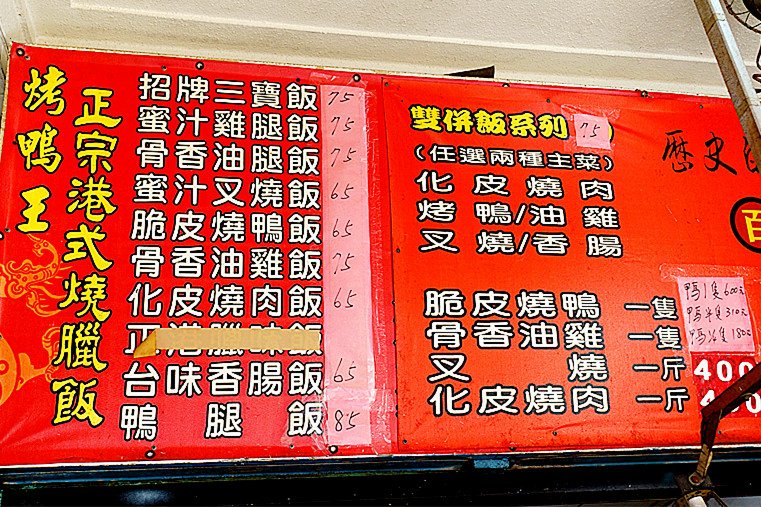 烤鴨王
正宗港式燒臘飯
招牌三寶飯 75
蜜汁雞腿飯 75
骨香油腿飯 75
蜜汁叉燒飯 65
脆皮燒鴨飯 65
骨香油雞飯 75
化皮燒肉飯 65
正港臘味飯
台味香腸飯 65
鴨腿飯 85
雙併飯系列 75
(任選兩種主菜)
化皮燒肉
烤鴨/油雞
叉燒/香腸
脆皮燒鴨 一隻
骨香油雞 一隻
叉燒 一斤 400
化皮燒肉 一斤
鴨1隻600元
鴨半隻310元
歷史
百